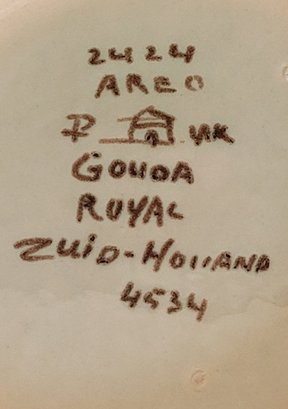 2424
AREO
P NK
GOUDA
ROYAL
ZUID-HOLLAND
4534